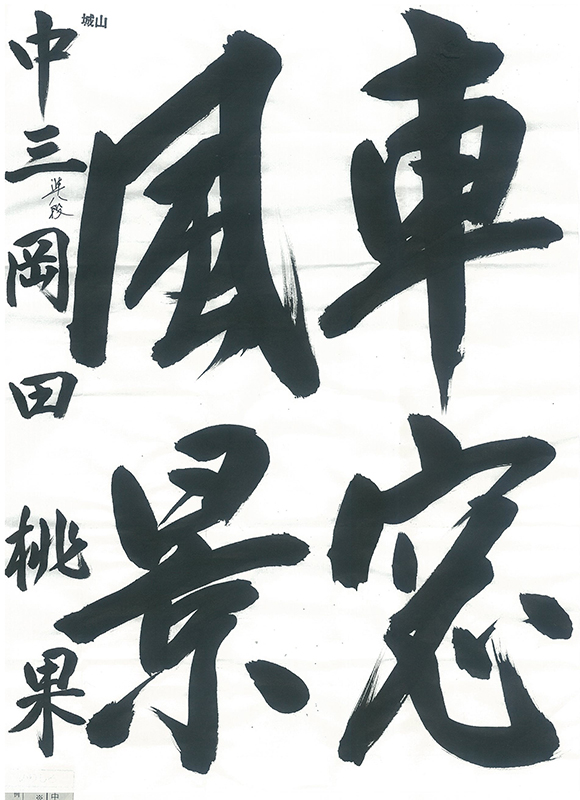 車窓
風景
中三 岡田桃果
城山